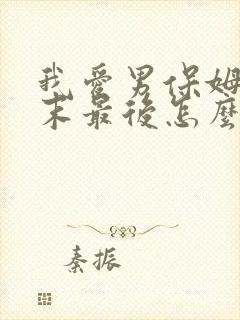 我爱男保姆
末最后怎麼
秦振